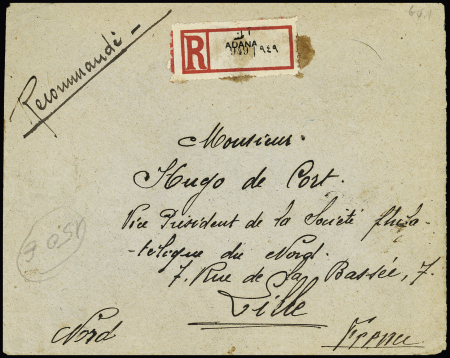 Recommandé
R
ADANA
949 ٩٤٩
Monsieur
Hugo de Cort.
Vice Président de la Société phila-
télique du Nord.
7. Rue de la Bassée, 7.
Lille
Nord
France